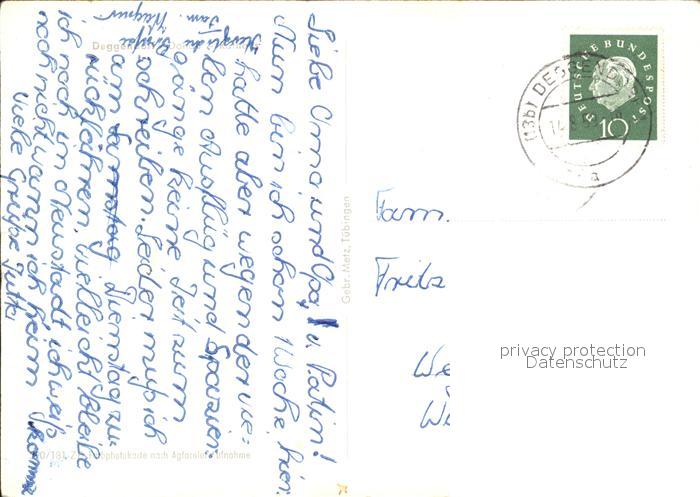 Liebe Oma und Opa, u. Patin!
Nun bin ich schon 1 Woche hier.
hatte aber wegen der vie-
len Ausflüg und Spazier-
gänge keine Zeit zum
schreiben. Leider muß ich
am Samstag Dienstag zu-
rückfahren. Vielleicht bleibe
ich noch in Neustadt ich weiß
noch nicht wann ich heim komme
Viele Grüße Jutta
Herzliche Grüße
Fam.
Deggendorf
Gebr. Metz, Tübingen
nach Agfacolor-Aufnahme
DEUTSCHE BUNDESPOST
10
(13b) DEGGENDORF
a
Fam.
Fritz
We
We
privacy protection
Datenschutz